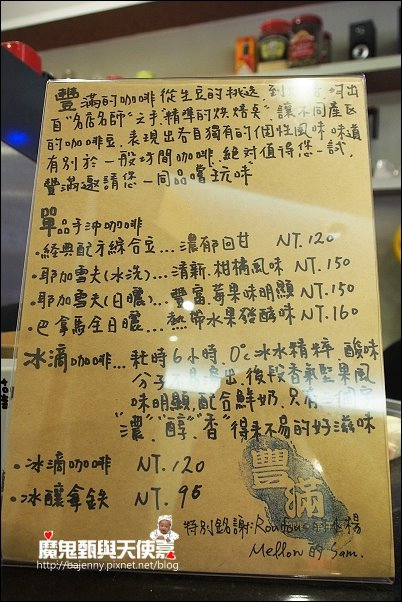 豐滿的咖啡從生豆的挑選 到 出
自"名店名師"之手"精準的烘焙桌"讓不同產区
的咖啡豆.表現出各自獨有的個性風味 味道
有別於一般坊間咖啡.絕対值得您一試,
豐滿邀請您一同品嚐玩味
單品手沖咖啡
·經典配方綜合豆...濃郁回甘 NT.120
·耶加雪夫(水洗)...清新.柑橘風味 NT.150
·耶加雪夫(日曬)...豐富莓果味明顯 NT.150
·巴拿馬全日曬...熱帶水果發酵味 NT.160
冰滴咖啡...耗時6小時.0°c冰水精粹 酸味
分子 出.後段香氣堅果風
味明顯.配合鮮奶.只有 個字
"濃"."醇"."香" 得來不易的好滋味
·冰滴咖啡 NT.120
·冰釀拿鉄 NT.95
豐滿
特別銘謝: 楊
Mellow的 Sam.
魔鬼甄與天使嘉
http://bajenny.pixnet.net/blog